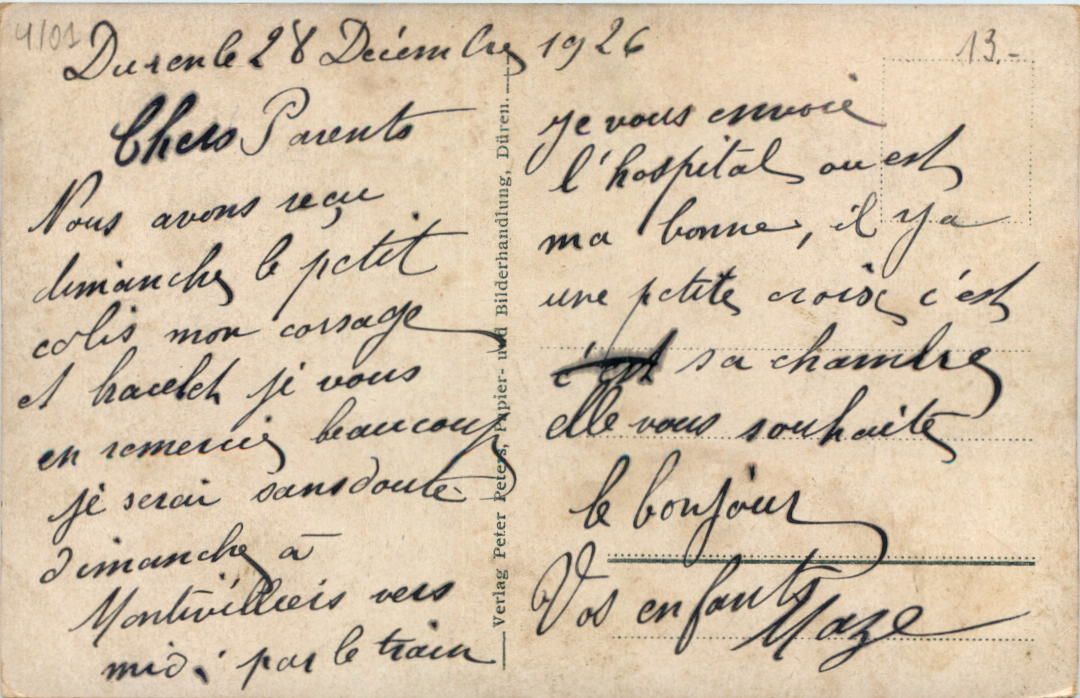 4/01
Duren le 28 Décembre 1926
13.-
Chers Parents
Nous avons reçu
dimanche le petit
colis mon corsage
et bracelet je vous
en remercie beaucoup
je serai sans doute
dimanche à
Montivilliers vers
midi par le train
Verlag Peter Peters, Papier- und Bilderhandlung, Düren.
je vous envoie
l'hospital ou est
ma bonne, il y a
une petite croix c'est
c'est sa chambre
elle vous souhaite
le bonjour
Vos enfants
Maze